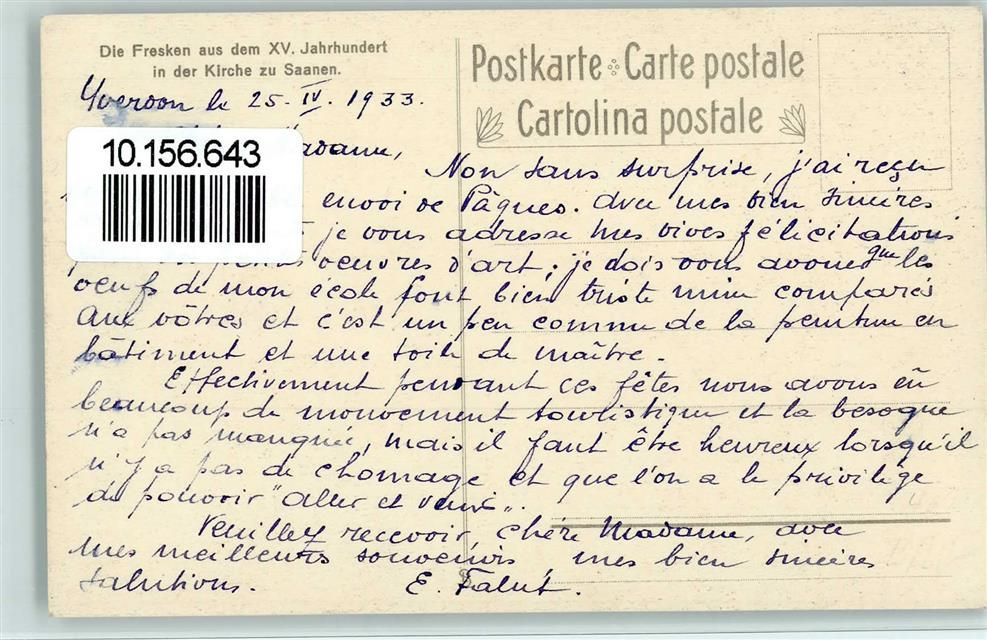 Die Fresken aus dem XV. Jahrhundert
in der Kirche zu Saanen.
Postkarte Carte postale
Cartolina postale
Yverdon le 25. IV. 1933.
10.156.643
Madame,
Non sans surprise, j'ai reçu
envoi de Pâques. Avec mes bien sincères
je vous adresse mes vives félicitations
oeuvres d'art; je dois vous avouer que les
oeufs de mon école font bien triste mine comparés
aux vôtres et c'est un peu comme de la peinture en
bâtiment et une toile de maître.
Effectivement pendant ces fêtes nous avons eu
beaucoup de mouvement touristique et la besogne
n'a pas manquée, mais il faut être heureux lorsqu'il
n'y a pas de chomage et que l'on a le privilège
de pouvoir "aller et venir".
Veuillez recevoir, chère Madame, avec
mes meilleurs souvenirs, mes bien sincères
salutions. E.